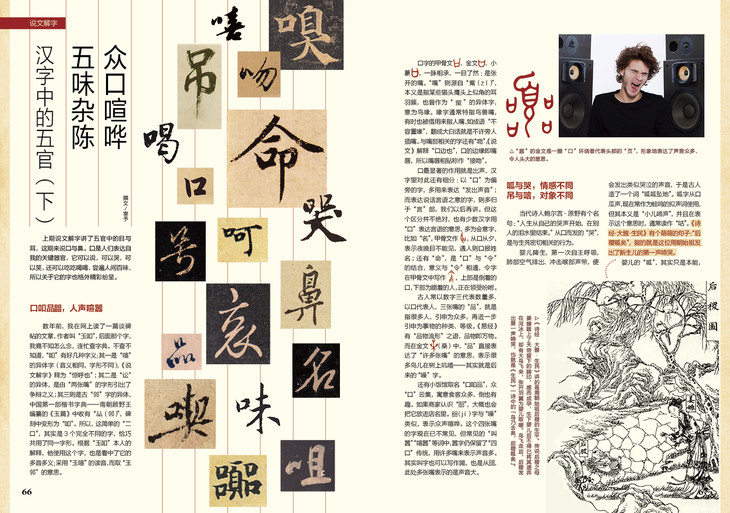 说文解字
众口喧哗
五味杂陈
汉字中的五官（下）
上期说文解字讲了五官中的目与
耳，这期来说口与鼻。口是人们表达自
我的关键器官，它可以说，可以哭，可
以笑，还可以吃吃喝喝，尝遍人间百味，
所以关于它的字也格外精彩纷呈。
口吅品㗊，人声喧嚣
数年前，我在网上读了一篇谈碑
帖的文章，作者叫“玉吅”，后面那个字，
我竟不知怎么念，连忙查字典，不查不
知道，“吅”有好几种字义：其一是“喧”
的异体字（音义相同，字形不同）。《说
文解字》释为“惊呼也”；其二是“讼”
的异体，是由“两张嘴”的字形引出了
争辩之义；其三则是古“邻”字的异体，
中国第一部楷书字典——南朝顾野王
编纂的《玉篇》中收有“厸（邻）”，碑
刻中变形为“吅”。所以，这简单的“二
口”，其实是3个完全不同的字，恰巧
共用了同一字形。根据“玉吅”本人的
解释，他使用这个字，也是看中了它的
多音多义：采用“玉喧”的读音，而取“玉
邻”的意思。
66
嘻
嗅
吊
吻
喝
命
口
哭
号
呵
鼻
哀
品
名
喫
味
嚣
咀
口字的甲骨文，金文，小
篆，一脉相承，一目了然：是张
开的嘴。“嘴”则源自“觜（zī）”，
本义是指某些猫头鹰头上似角的耳
羽簇，也曾作为“蟕”的异体字，
意为鸟喙。喙字通常特指鸟兽嘴，
有时也被借用来指人嘴，如成语“不
容置喙”，翻成大白话就是不许旁人
插嘴。与嘴部相关的字还有“吻”，《说
文》解释“口边也”，口的边缘即嘴
唇，所以嘴唇相贴称作“接吻”。
口最显著的作用就是出声，汉
字里对此还有细分：以“口”为偏
旁的字，多用来表达“发出声音”；
而表达说话言语之意的字，则多归
于“言”部，我们以后再讲。但这
个区分并不绝对，也有少数文字用
“口”表达言语的意思，多为会意字，
比如“名”，甲骨文作，从口从夕，
表示夜晚目不能见，遇人则口报姓
名；还有“命”，是“口”与“令”
的结合，意义与“令”相通，令字
在甲骨文中写作，上部是倒着的
口，下部为跪着的人，正在领受吩咐。
古人常以数字三代表数量多，
以口代表人，三张嘴的“品”，就是
指很多人，引申为众多，再进一步
引申为事物的种类、等级。《易经》
有“品物流形”之语，品物即万物。
而在金文（桑）中，“品”直接表
达了“许多张嘴”的意思，表示很
多鸟儿在树上叽喳——其实就是后
来的“噪”字。
还有小饭馆取名“口吅品”，众
“口”云集，寓意食客众多，倒也有
趣。如果商家认识“㗊”，大概也会
把它放进店名里。㗊（jí）字与“噪”
类似，表示众声喧哗。这个四张嘴
的字现在已不常见，但常见的“叫
嚣”“喧嚣”等词中，嚣字仍保留了“四
口”传统，用许多嘴来表示声音多。
其实叫字也可以写作嘂，也是从㗊，
此处多张嘴表示的是声音大。
△“嚣”的金文是一圈“口”环绕着代表头部的“页”，形象地表达了声音众多、
令人头大的意思。
呱与哭，情感不同
吊与唁，对象不同
当代诗人鲍尔吉·原野有个名
句：“人生从自己的哭声开始，在别
人的泪水里结束。”从口而发的“哭”，
是与生死密切相关的行为。
婴儿降生，第一次自主呼吸，
肺部空气排出，冲击喉部声带，便
会发出类似哭泣的声音，于是古人
造了一个词“呱呱坠地”，呱字从口
瓜声，现在常作为蛙鸣的拟声词使用，
但其本义是“小儿啼声”，并且在表
示这个意思时，通常读作“咕”。《诗
经·大雅·生民》有个萌萌的句子：“后
稷呱矣”，指的就是这位周朝始祖发
出了新生儿的第一声啼哭。
婴儿的“呱”，其实只是本能，
后稷图